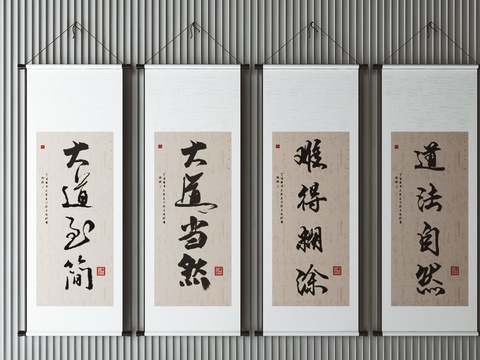 大道至简
大道当然
难得糊涂
道法自然